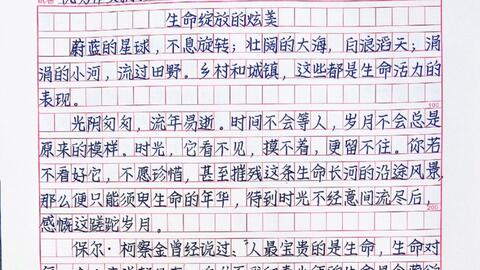 生命绽放的炫美
蔚蓝的星球，不息旋转；壮阔的大海，白浪滔天；涓
涓的小河，流过田野。乡村和城镇，这些都是生命活力的
表现。
100
光阴匆匆，流年易逝。时间不会等人，岁月不会总是
原来的模样。时光，它看不见，摸不着，更留不住。你若
不看好它，不愿珍惜，甚至摧残这条生命长河的沿途风景，
那么便只能须臾生命的年华，待到时光不经意间流尽后，
200
感慨这蹉跎岁月。
保尔·柯察金曾经说过、"人最宝贵的是生命，生命对